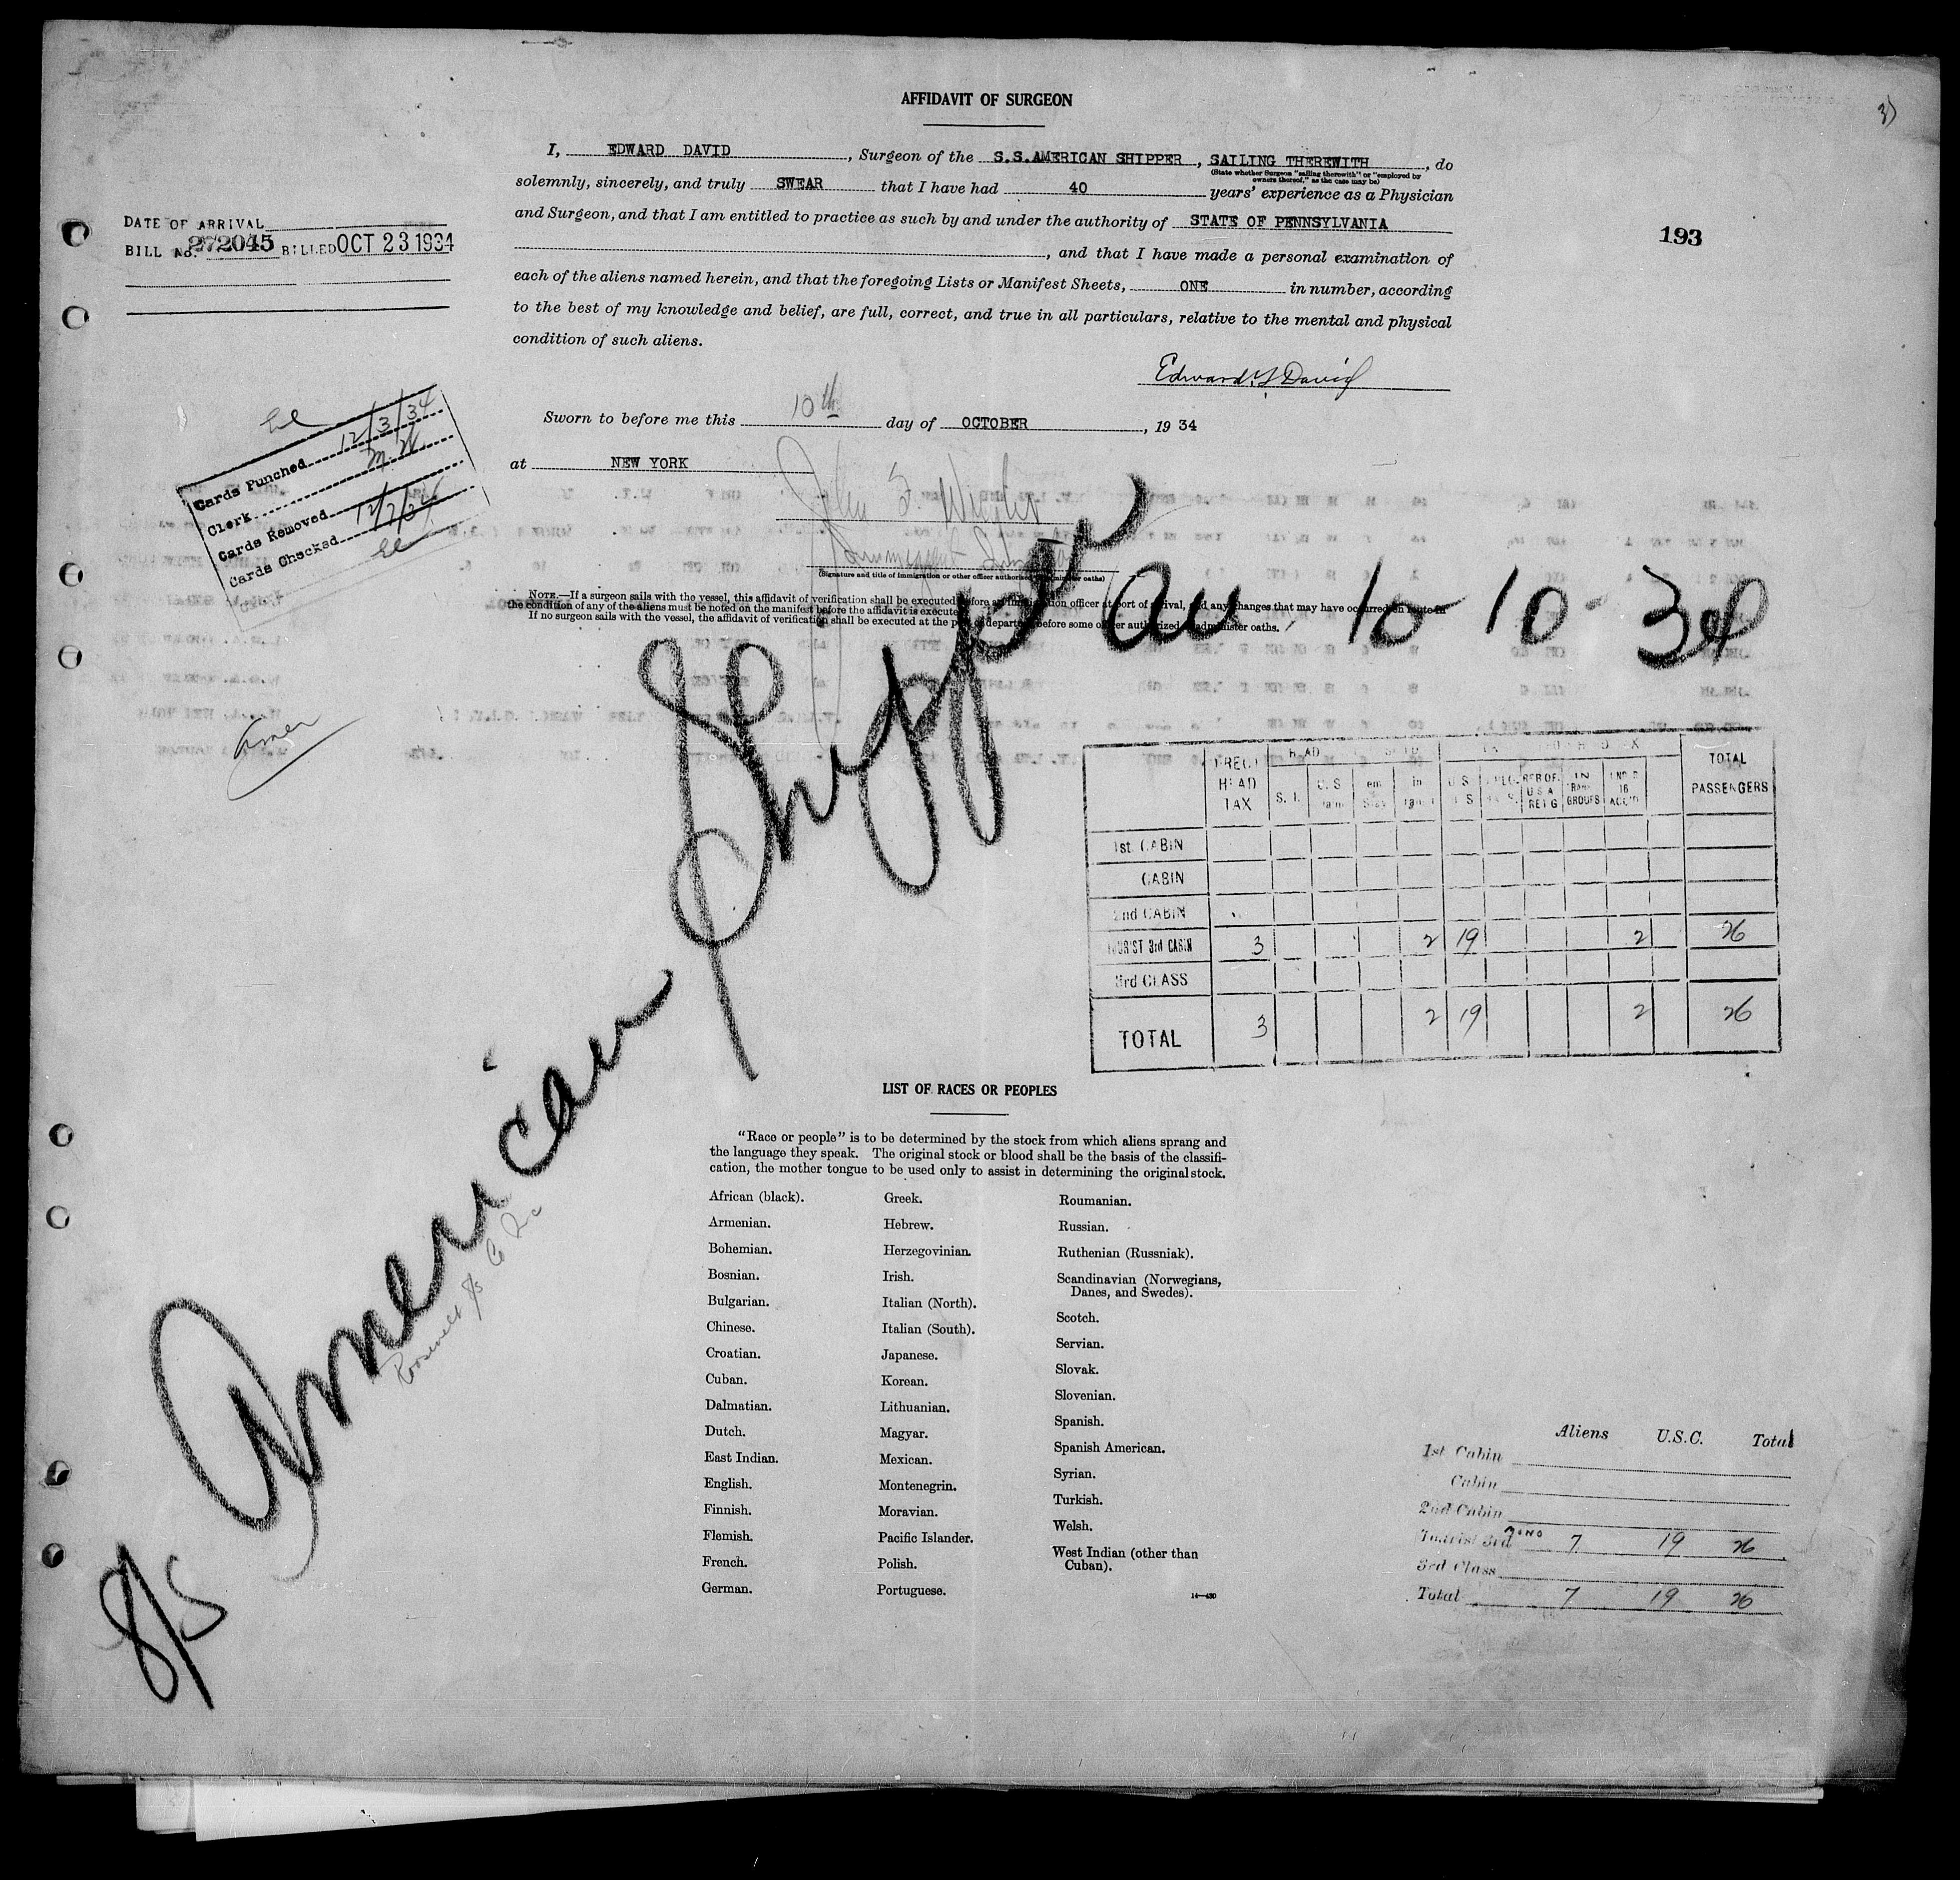 AFFIDAVIT OF SURGEON
I, EDWARD DAVID, Surgeon of the S.S.AMERICAN SHIPPER, SAILING THEREWITH, do
(State whether Surgeon "sailing therewith" or "employed by
owners thereof," as the case may be)
solemnly, sincerely, and truly SWEAR that I have had 40 years' experience as a Physician
and Surgeon, and that I am entitled to practice as such by and under the authority of STATE OF PENNSYLVANIA
, and that I have made a personal examination of
each of the aliens named herein, and that the foregoing Lists or Manifest Sheets, ONE in number, according
to the best of my knowledge and belief, are full, correct, and true in all particulars, relative to the mental and physical
condition of such aliens.
Edward Y David
Sworn to before me this 10th day of OCTOBER, 19 34
at NEW YORK
John F.
(Signature and title of immigration or other officer authorized to administer oaths)
NOTE.—If a surgeon sails with the vessel, this affidavit of verification shall be executed before an immigration officer at port of arrival, and any changes that may have occurred en route in
the condition of any of the aliens must be noted on the manifest before the affidavit is executed
If no surgeon sails with the vessel, the affidavit of verification shall be executed at the port of departure before some officer authorized to administer oaths.
DATE OF ARRIVAL
BILL NO. 272045 BILLED OCT 23 1934
193
Cards Punched 12/3/34
Clerk M.W.
Cards Removed 12/7/34
Cards Checked
American Shipper
10-10-34
TOTAL PASSENGERS
HEAD TAX
S. I.
GROUPS
1st. CABIN
CABIN
2nd CABIN
TOURIST 3rd CABIN 3 2 19 2 26
3rd CLASS
TOTAL 3 2 19 2 26
LIST OF RACES OR PEOPLES
"Race or people" is to be determined by the stock from which aliens sprang and
the language they speak. The original stock or blood shall be the basis of the classifi-
cation, the mother tongue to be used only to assist in determining the original stock.
African (black).
Armenian.
Bohemian.
Bosnian.
Bulgarian.
Chinese.
Croatian.
Cuban.
Dalmatian.
Dutch.
East Indian.
English.
Finnish.
Flemish.
French.
German.
Greek.
Hebrew.
Herzegovinian.
Irish.
Italian (North).
Italian (South).
Japanese.
Korean.
Lithuanian.
Magyar.
Mexican.
Montenegrin.
Moravian.
Pacific Islander.
Polish.
Portuguese.
Roumanian.
Russian.
Ruthenian (Russniak).
Scandinavian (Norwegians,
Danes, and Swedes).
Scotch.
Servian.
Slovak.
Slovenian.
Spanish.
Spanish American.
Syrian.
Turkish.
Welsh.
West Indian (other than
Cuban).
14—430
Roosevelt SS Co Inc
Aliens U.S.C. Total
1st Cabin
Cabin
2nd Cabin
Tourist 3rd 7 19 26
3rd Class
Total 7 19 26